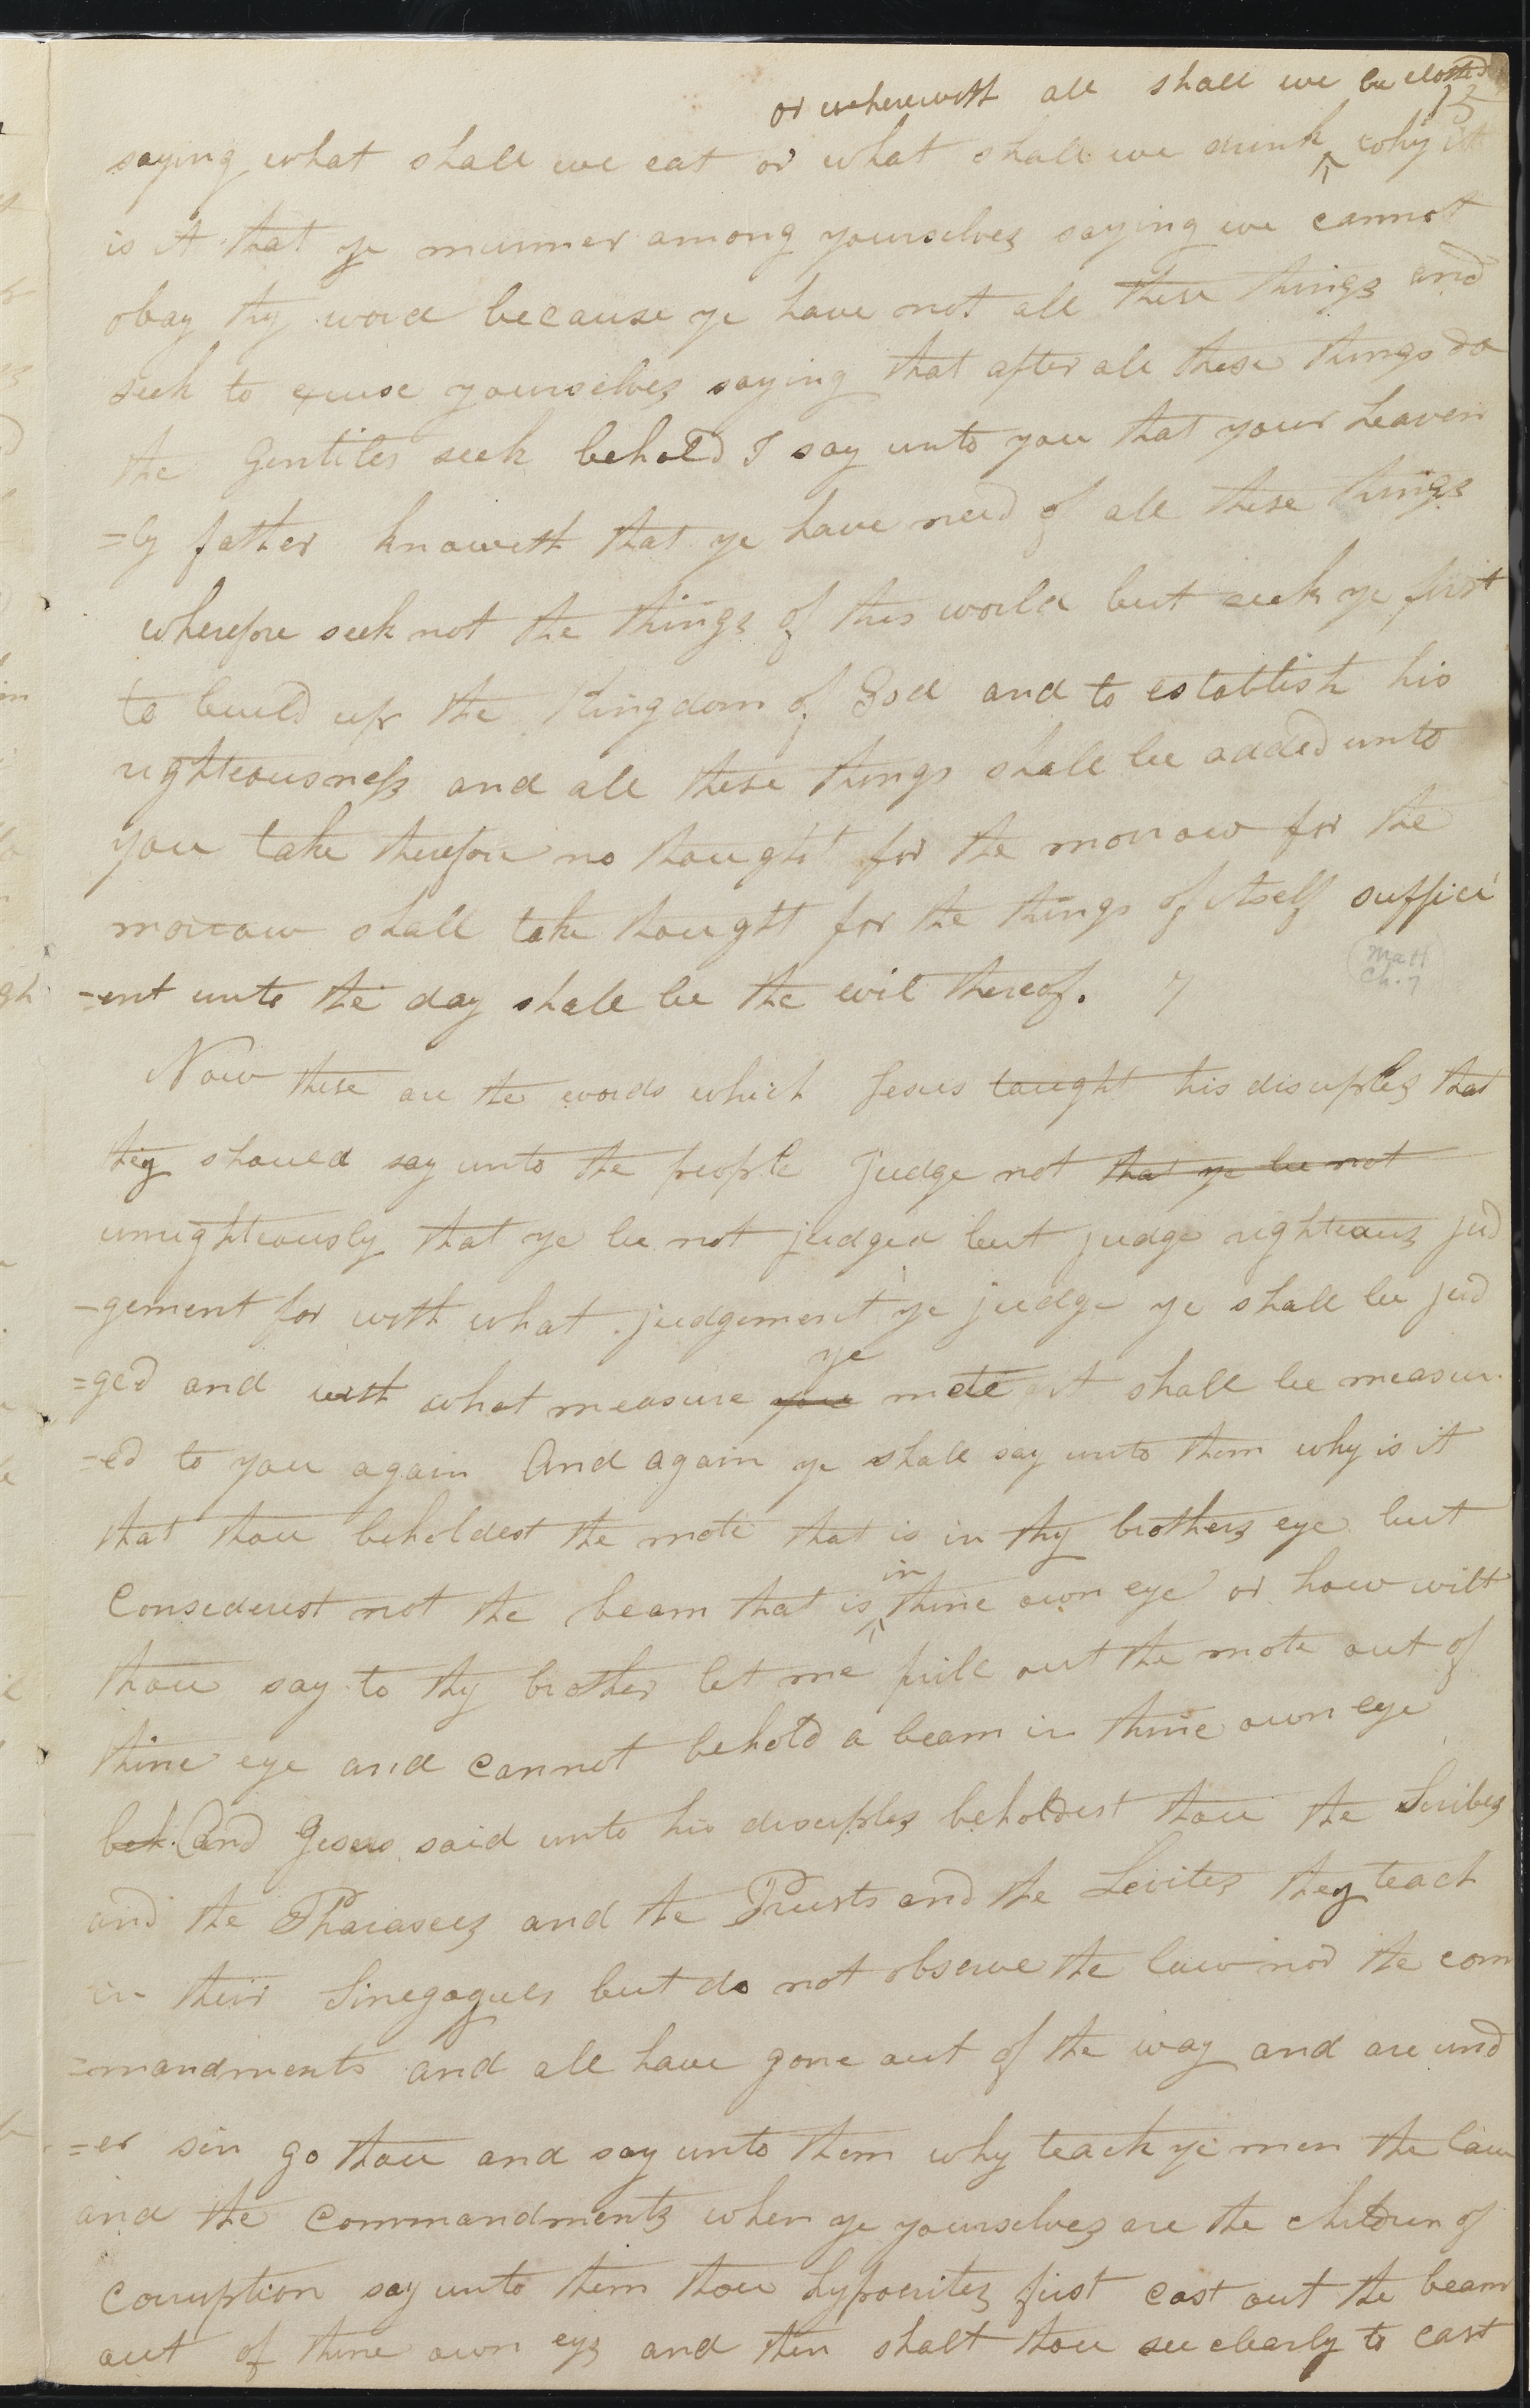 or wherewith all shall we be clothed
15
saying what shall we eat or what shall we drink why it
is it that ye murmer among yourselves saying we cannot
obay thy word because ye have not all these things and
seek to excuse yourselves saying that after all these things do
the Gentiles seek behold I say unto you that your heaven
=ly father knoweth that ye have need of all these things
wherefore seek not the things of this world but seek ye first
to build up the Kingdom of God and to establish his
righteousness and all these things shall be added unto
you take therefore no thought for the morrow for the
morrow shall take thought for the things of itself suffici
=ent unto the day shall be the evil thereof. 7
Matt
Ch. 7
Now these are the words which Jesus taught his disciples that
they should say unto the people Judge not that ye be not
unrighteously that ye be not judged but judge righteous jud
=gement for with what judgement ye judge ye shall be jud
=ged and with what measure you ye mete it shall be measur
=ed to you again And again ye shall say unto them why is it
that thou beholdest the mote that is in thy brothers eye but
Considerest not the beam that is in thine own eye or how wilt
thou say to thy brother let me pull out the mote out of
thine eye and cannot behold a beam in thine own eye
beh. And Jesus said unto his disciples beholdest thou the Scribes
and the Pharasees and the Priests and the Levites they teach
in their Sinegogues but do not observe the law nor the com
=mandments and all have gone out of the way and are und
=er sin go thou and say unto them why teach ye men the law
and the Commandments when ye yourselves are the children of
Corruption say unto them thou hypocrites first cast out the beam
out of thine own eye and then shalt thou see clearly to cast